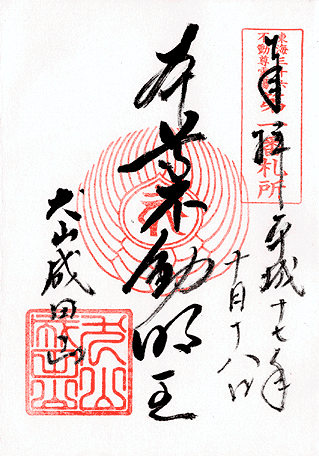 東海三十六
不動尊霊場
第一番札所
奉拝
平成十七年
十月十八日
本尊不動明王
犬山成田山